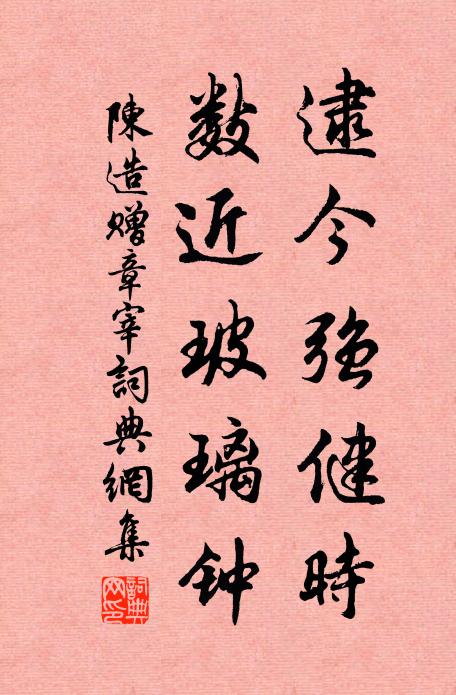 逮今强健時
数近玻璃钟
陳造贈章宰詞典網集
詞典网印